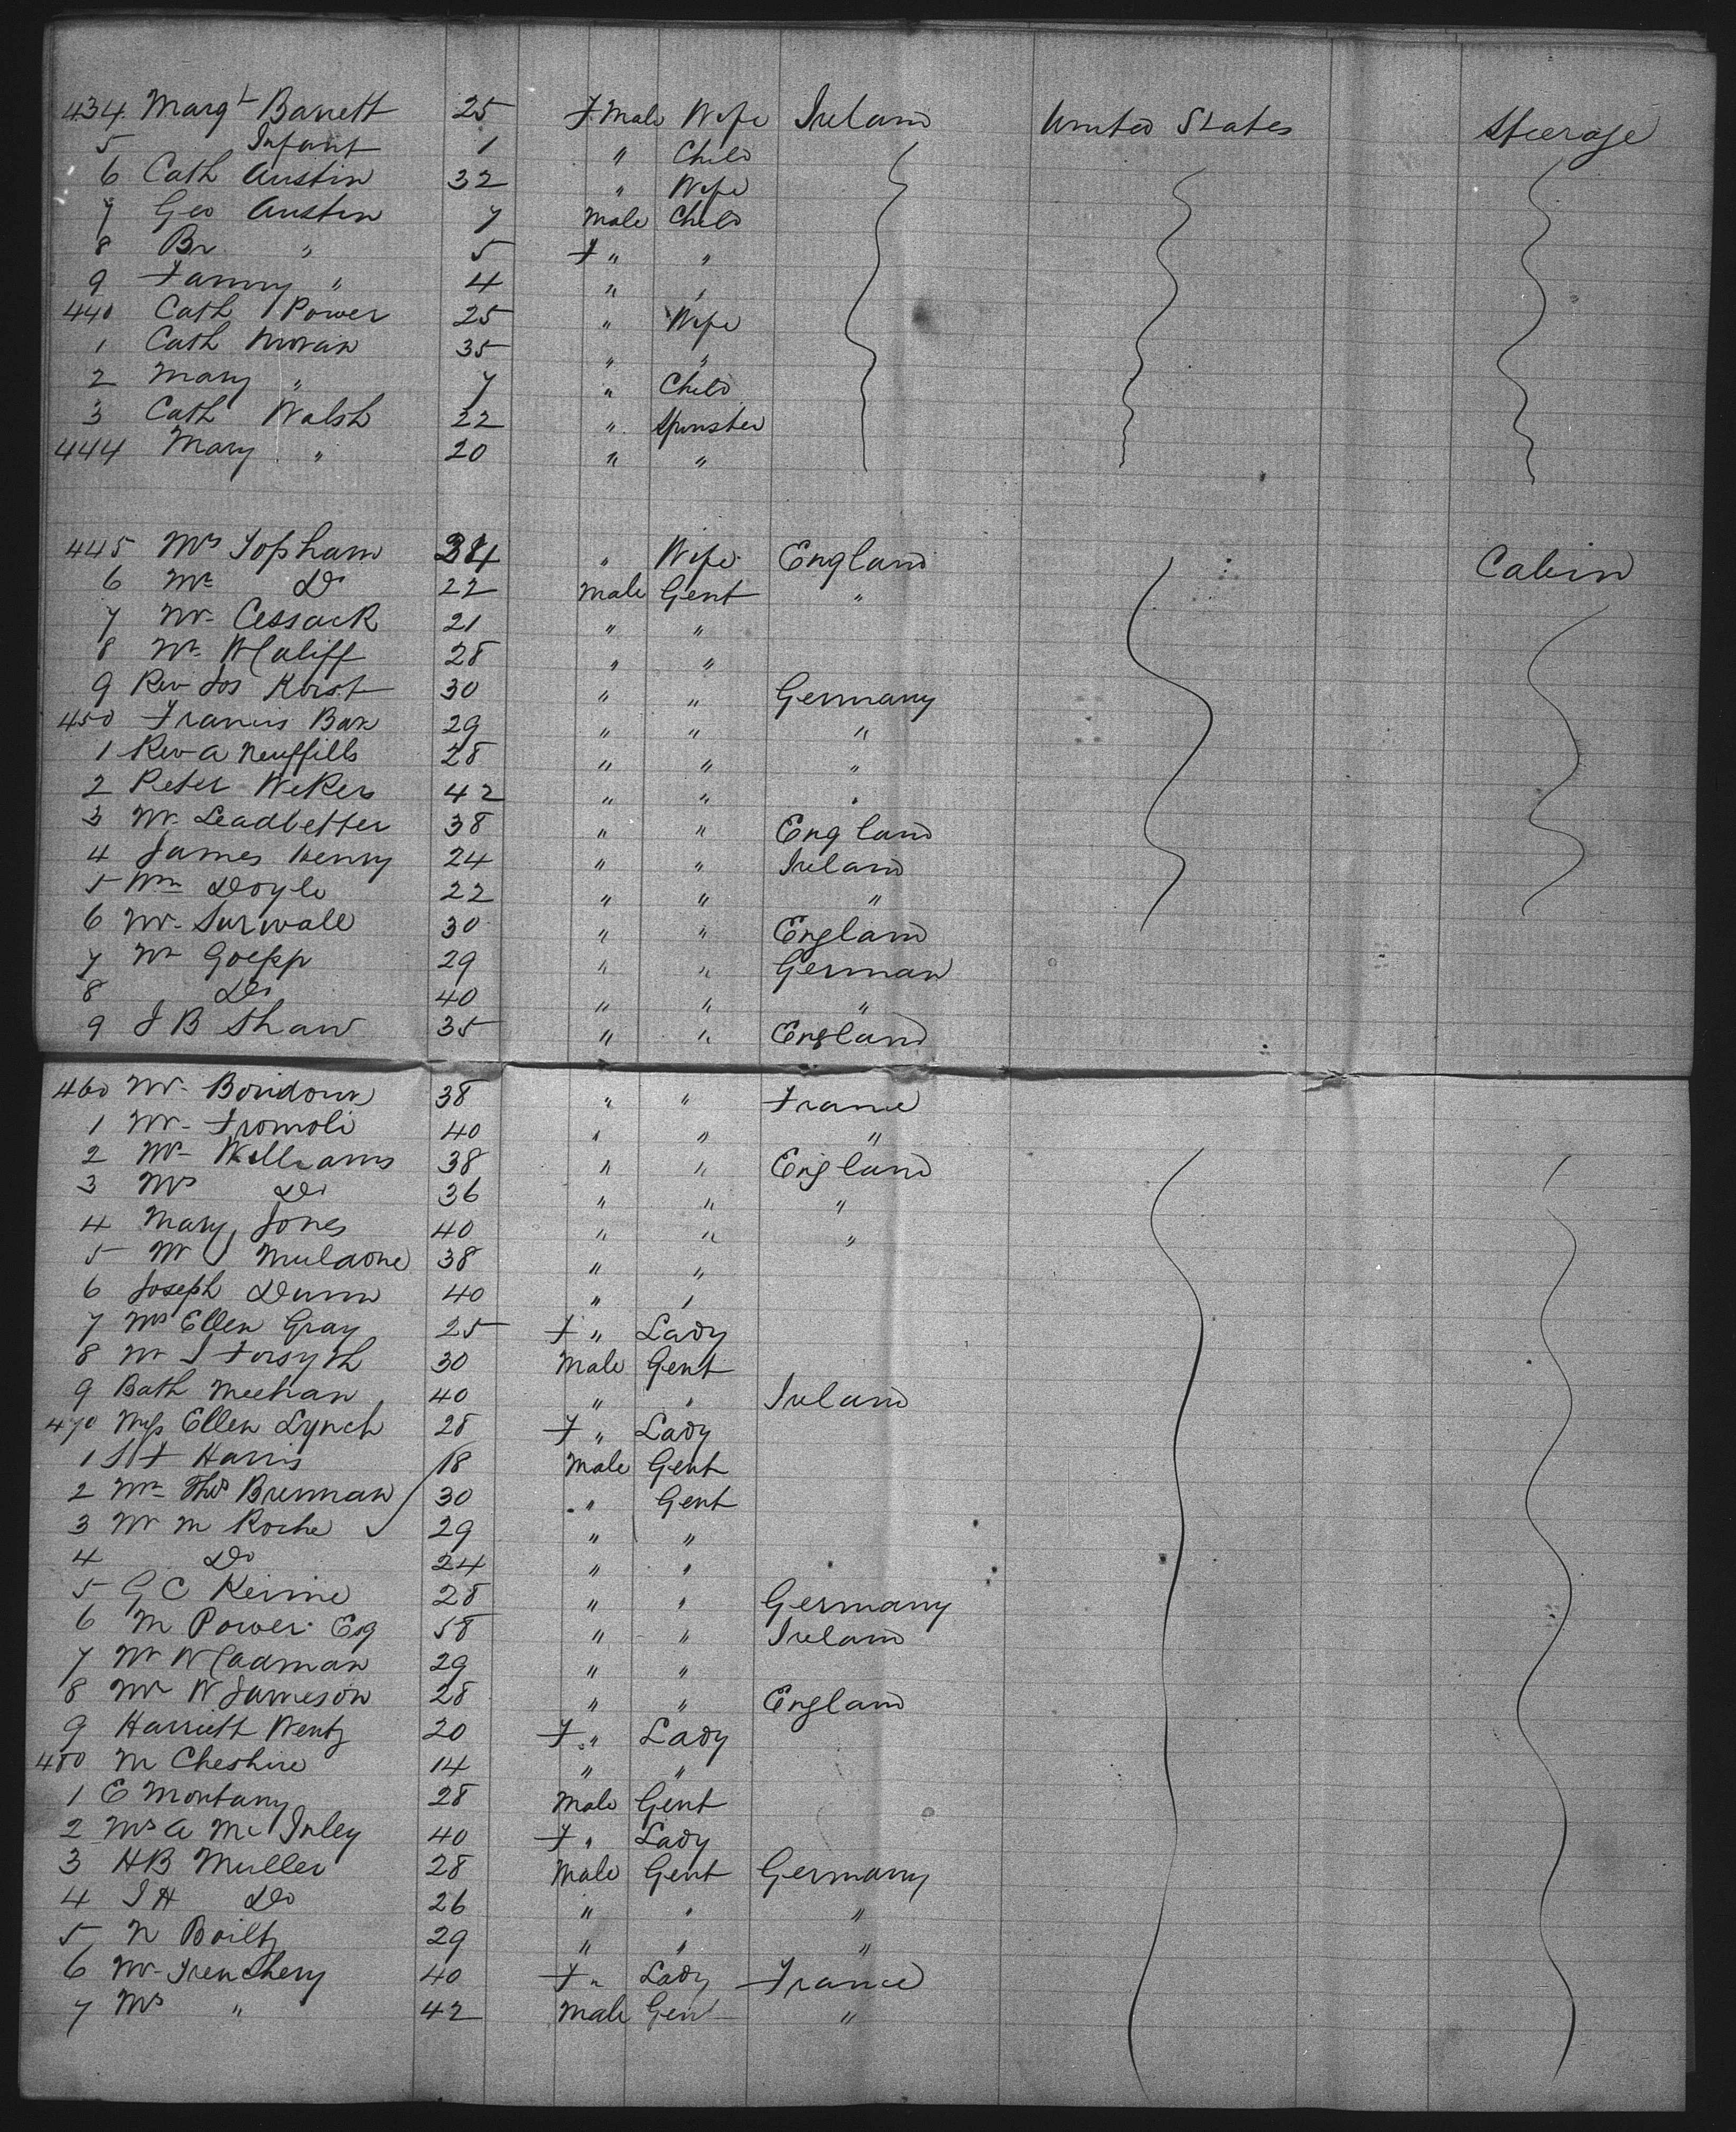 434 Margt Barrett 25 F Male Wife Ireland United States Steerage
5 Infant 1 " Child
6 Cath Austin 32 " Wife
7 Geo Austin 7 Male Child
8 Br " 5 F " "
9 Fanny " 4 " "
440 Cath Power 25 " Wife
1 Cath Moran 35 " "
2 Mary " 7 " Child
3 Cath Walsh 22 " Spinster
444 Mary " 20 " "
445 Mrs Topham " Wife England Cabin
6 Mr Do 22 Male Gent "
7 Mr Cessack 21 " "
8 Mr W Califf 28 " "
9 Rev Jos Kerst 30 " " Germany
450 Francis Bax 29 " " "
1 Rev A 28 " " "
2 Peter Wekers 42 " " "
3 Mr Leadbetter 38 " " England
4 James Henry 24 " " Ireland
5 Wm Doyle 22 " " "
6 Mr Surwall 30 " " England
7 Mr Goepp 29 " " German
8 Do 40 " " "
9 J B Shaw 35 " " England
460 Mr 38 " " France
1 Mr Fromoli 40 " " "
2 Mr Williams 38 " " England
3 Mrs Do 36 " " "
4 Mary Jones 40 " " "
5 Mr J 38 " "
6 Joseph Dunn 40 " "
7 Mrs Ellen Gray 25 F " Lady
8 Mr J Forsyth 30 Male Gent
9 Bath Meehan 40 " " Ireland
470 Miss Ellen Lynch 28 F " Lady
1 Harris 18 Male Gent
2 Mr Thos Brennan 30 " Gent
3 Mr M Roche 29 " "
4 Do 24 " "
5 G C 28 " " Germany
6 M Power Esq 58 " " Ireland
7 Mr W Cadman 29 " "
8 Mr W Jameson 28 " " England
9 Harriett Wentz 20 F " Lady
480 M Cheshire 14 " "
1 E Montany 28 Male Gent
2 Mrs A McInley 40 F " Lady
3 HB Muller 28 Male Gent Germany
4 J H Do 26 " " "
5 N Boiltz 29 " " "
6 Mr Trenchery 40 F " Lady France
7 Mrs " 42 Male Gent "